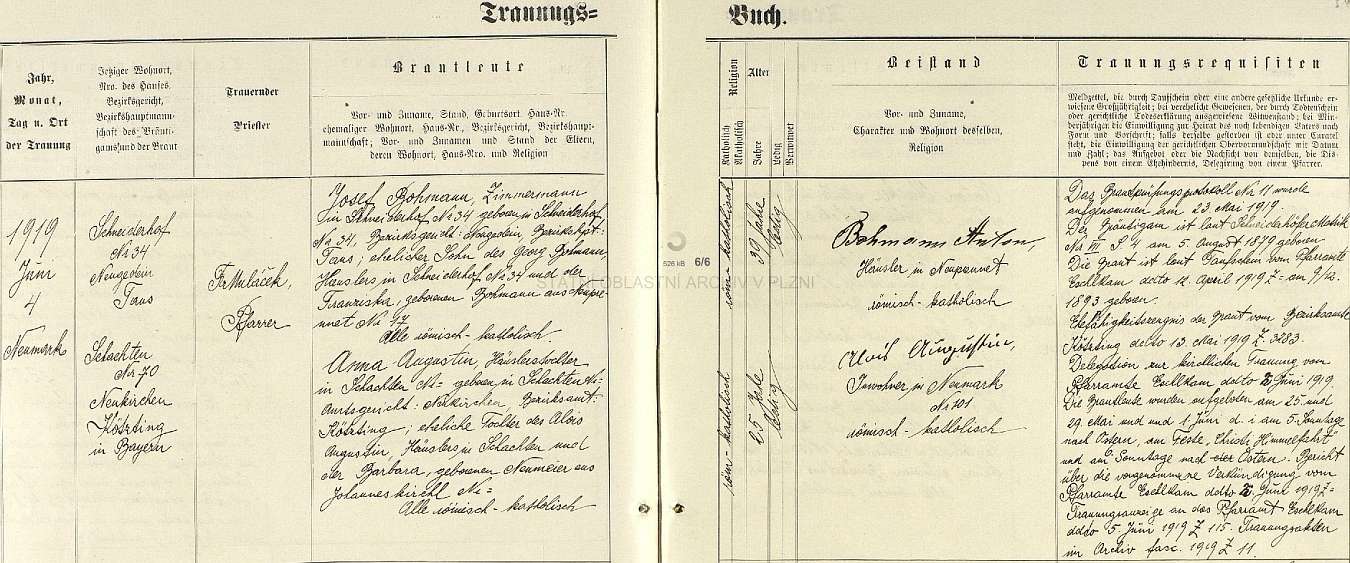 Trauungs=
Buch.
Jahr,
Monat,
Tag u. Ort
der Trauung
Jetziger Wohnort,
Nro. des Hauses,
Bezirksgericht,
Bezirkshauptmann-
schaft des Bräuti-
gams und der Braut
Trauernder
Priester
Brautleute
Vor- und Zuname, Stand, Geburtsort, Haus-Nr.
ehemaliger Wohnort, Haus-Nr., Bezirksgericht, Bezirkshaupt-
mannschaft; Vor- und Zunamen und Stand der Eltern,
deren Wohnort, Haus-Nro. und Religion
Religion
Katholisch
Akatholisch
Alter
Jahre
Ledig
Verwitwet
Beistand
Vor- und Zuname,
Charakter und Wohnort desselben,
Religion
Trauungsrequisiten
Meldzettel, die durch Taufschein oder eine andere gesetzliche Urkunde er-
wiesene Großjährigkeit; bei verehelicht Gewesenen, der durch Todtenschein
oder gerichtliche Todeserklärung ausgewiesene Witwenstand; bei Min-
derjährigen die Einwilligung zur Heirat des noch lebendigen Vaters nach
Form und Vorschrift, falls derselbe gestorben ist oder unter Curatel
steht, die Einwilligung der gerichtlichen Obervormundschaft mit Datum
und Zahl; das Aufgebot oder die Nachsicht von demselben, die Dis-
pens von einem Ehehindernis, Delegirung von einem Pfarrer.
1919
Juni
4
Neumark
Schneiderhof
Nr 34
Neugedein
Taus
Schachten
Nr 70
Neukirchen
Kötzting
in Bayern
Fr. Mulaček,
Pfarrer
Josef Bohmann, Zimmermann
in Schneiderhof Nr 34 geboren in Schneiderhof,
Nr 34, Bezirksgericht: Neugedein, Bezirkshpt:
Taus; ehelicher Sohn des Georg Bohmann,
Häuslers in Schneiderhof Nr 34 und der
Franziska, geborenen Bohmann aus Neupre-
nnet Nr 17
Alle römisch-katholisch.
Anna Augustin, Häuslerstochter
in Schachten Nr- geboren in Schachten Nr=
Amtsgericht: Neukirchen, Bezirksamt:
Kötzting; eheliche Tochter des Alois
Augustin, Häuslers in Schachten und
der Barbara, geborenen Neumeier aus
Johanneskirchl Nr=
Alle römisch-katholisch
röm-katholisch
39 Jahre
ledig
röm-katholisch
25 Jahre
ledig
Bohmann Anton,
Häusler in Neuprennet
römisch-katholisch
Alois Augustin,
Inwohner in Neumark
Nr 101
römisch-katholisch
Das Brautprüfungsprotokoll Nr 11 wurde
aufgenommen am 23 Mai 1919.
Der Bräutigam ist laut Schneiderhofer Matrik
Nr III S. 4 am 5. August 1879 geboren.
Die Braut ist laut Taufschein vom Pfarramte
Eschlkam ddto 12. April 1919 Z- am 9/12.
1893 geboren.
Ehefähigkeitszeugnis der Braut vom Bezirksamte
Kötzting ddto 13. Mai 1919 Z. 3483.
Delegation zur kirchlichen Trauung vom
Pfarramte Eschlkam ddto 2. Juni 1919.
Die Brautleute wurden aufgeboten am 25 und
29. Mai und und 1 Juni d. i. am 5. Sonntage
nach Ostern, am Feste Christi Himmelfahrt
und am 6 Sonntage nach Ostern. Bericht
über die vorgenommene Verkündigung vom
Pfarramte Eschlkam ddto 2. Juni 1919 Z=
Trauungsanzeige an das Pfarramt Eschlkam
ddto 5. Juni 1919 Z 115. Trauungsakten
im Archiv fasc. 1919 Z 11.
526 kB 6/6
STÁTNÍ OBLASTNÍ ARCHIV V PLZNI